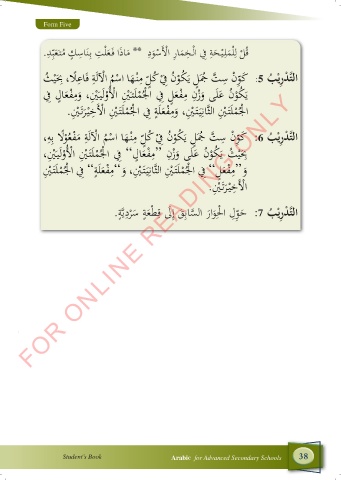 Form Five
قُلْ لِلْمَلِيْحَةِ فِي الْخِمَارِ الْأَسْوَدِ ** مَاذَا فَعَلْتِ بِنَاسِكٍ مُتَعَبِّدِ.
التَّدْرِيْبُ 5: كَوِّنْ سِتَّ جُمَلٍ يَكُوْنُ فِيْ كُلٍّ مِنْهَا اسْمُ الْآلَةِ فَاعِلًا، بِحَيْثُ
يَكُوْنُ عَلَى وَزْنِ مِفْعَلٍ فِي الْجُمْلَتَيْنِ الْأُوْلَيَيْنِ، وَمِفْعَالٍ فِي
الْجُمْلَتَيْنِ الثَّانِيَتَيْنِ، وَمِفْعَلَةٍ فِي الْجُمْلَتَيْنِ الْأَخِيْرَتَيْنِ.
التَّدْرِيْبُ 6: كَوِّنْ سِتَّ جُمَلٍ يَكُوْنُ فِيْ كُلٍّ مِنْهَا اسْمُ الْآلَةِ مَفْعُوْلًا بِهِ،
بِحَيْثُ يَكُوْنُ عَلَى وَزْنِ ”مِفْعَالٍ“ فِي الْجُمْلَتَيْنِ الْأُوْلَيَيْنِ،
وَ”مِفْعَلٍ“ فِي الْجُمْلَتَيْنِ الثَّانِيَتَيْنِ، وَ”مِفْعَلَةٍ“ فِي الْجُمْلَتَيْنِ
الْأَخِيْرَتَيْنِ.
التَّدْرِيْبُ 7: حَوِّلِ الْحِوَارَ السَّابِقَ إِلَى قِطْعَةٍ سَرْدِيَّةٍ.
FOR ONLINE READING ONLY
Student's Book
Arabic for Advanced Secondary Schools
38